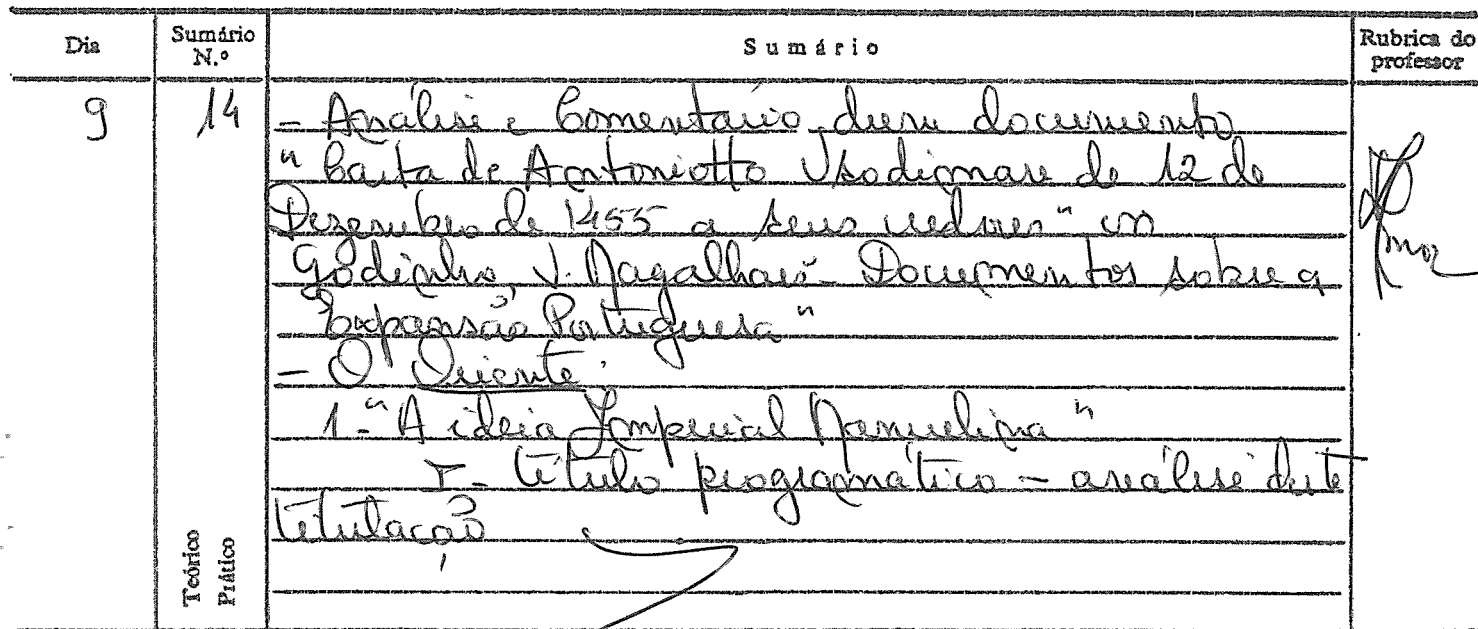 Dia
Sumário N.º
Sumário
Rubrica do professor
9
14
- Análise e Comentário dum documento
"Carta de Antoniotto Usodimare de 12 de
Dezembro de 1455 a seus credores" in
Godinho, V. Magalhães - Documentos sobre a
Expansão Portuguesa"
- O Oriente:
1 - "A ideia Imperial Manuelina"
I - título programático - análise deste
titulação
Teórico
Prático